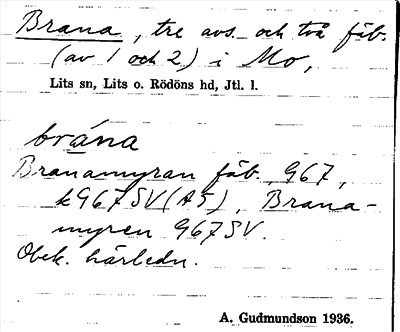 Brana, tre avs. och två fäb.
(av 1 och 2) i Mo,
Lits sn, Lits o. Rödöns hd, Jtl. l.
brána
Branamyran fäb. G67,
k G67SV (A5), Brana-
myren G67SV.
Obek. härledn.
A. Gudmundson 1936.